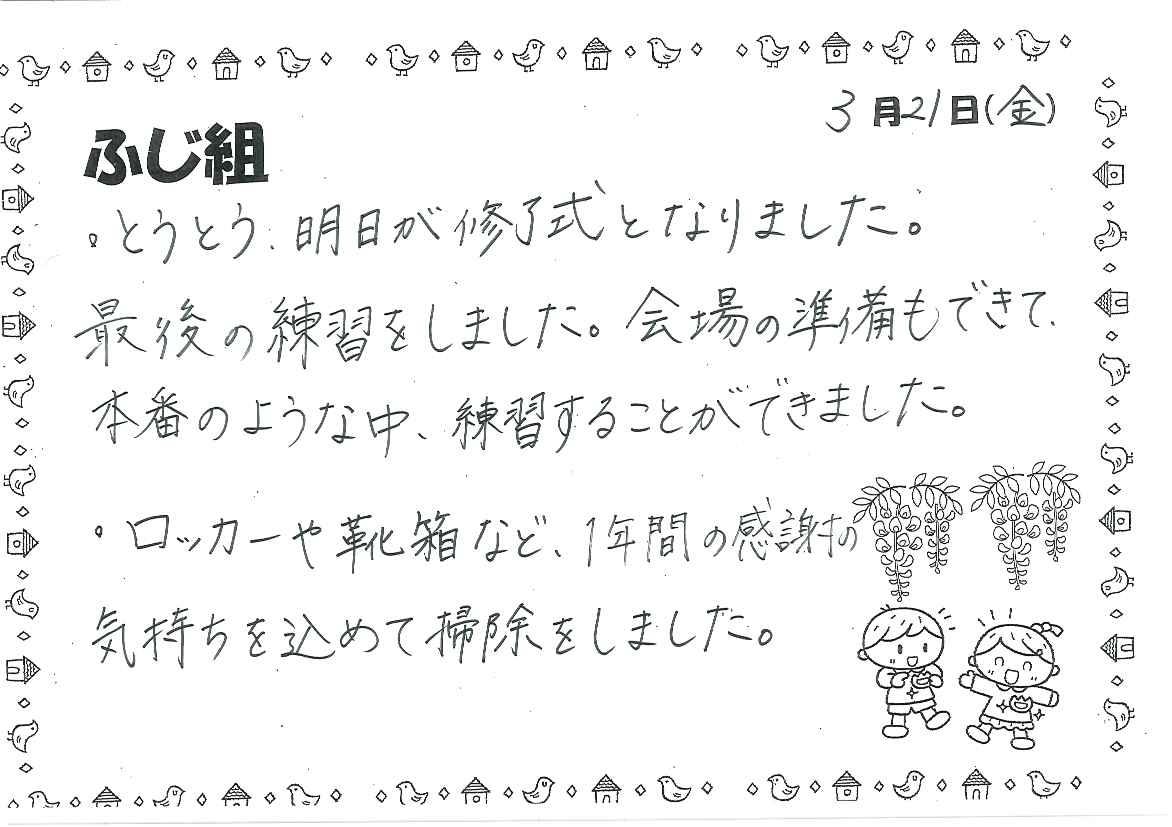 3月21日(金)
ふじ組
・とうとう、明日が修了式となりました。
最後の練習をしました。会場の準備もできて、
本番のような中、練習することができました。
・ロッカーや靴箱など、1年間の感謝の
気持ちを込めて掃除をしました。